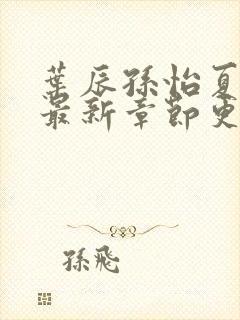 葉辰孫怡夏
最新章節更
孫飛